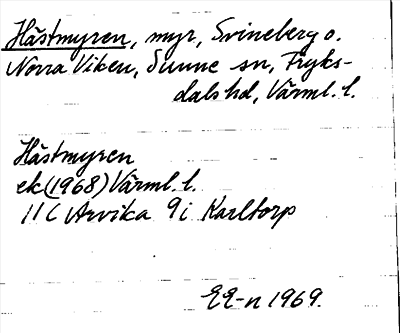 Hästmyren, myr, Svineberg o.
Norra Viken, Sunne sn, Fryks-
dals hd, Värml. l.
Hästmyren
ek (1968) Värml. l.
11 C Arvika 9 i Karltorp
EE-n 1969.